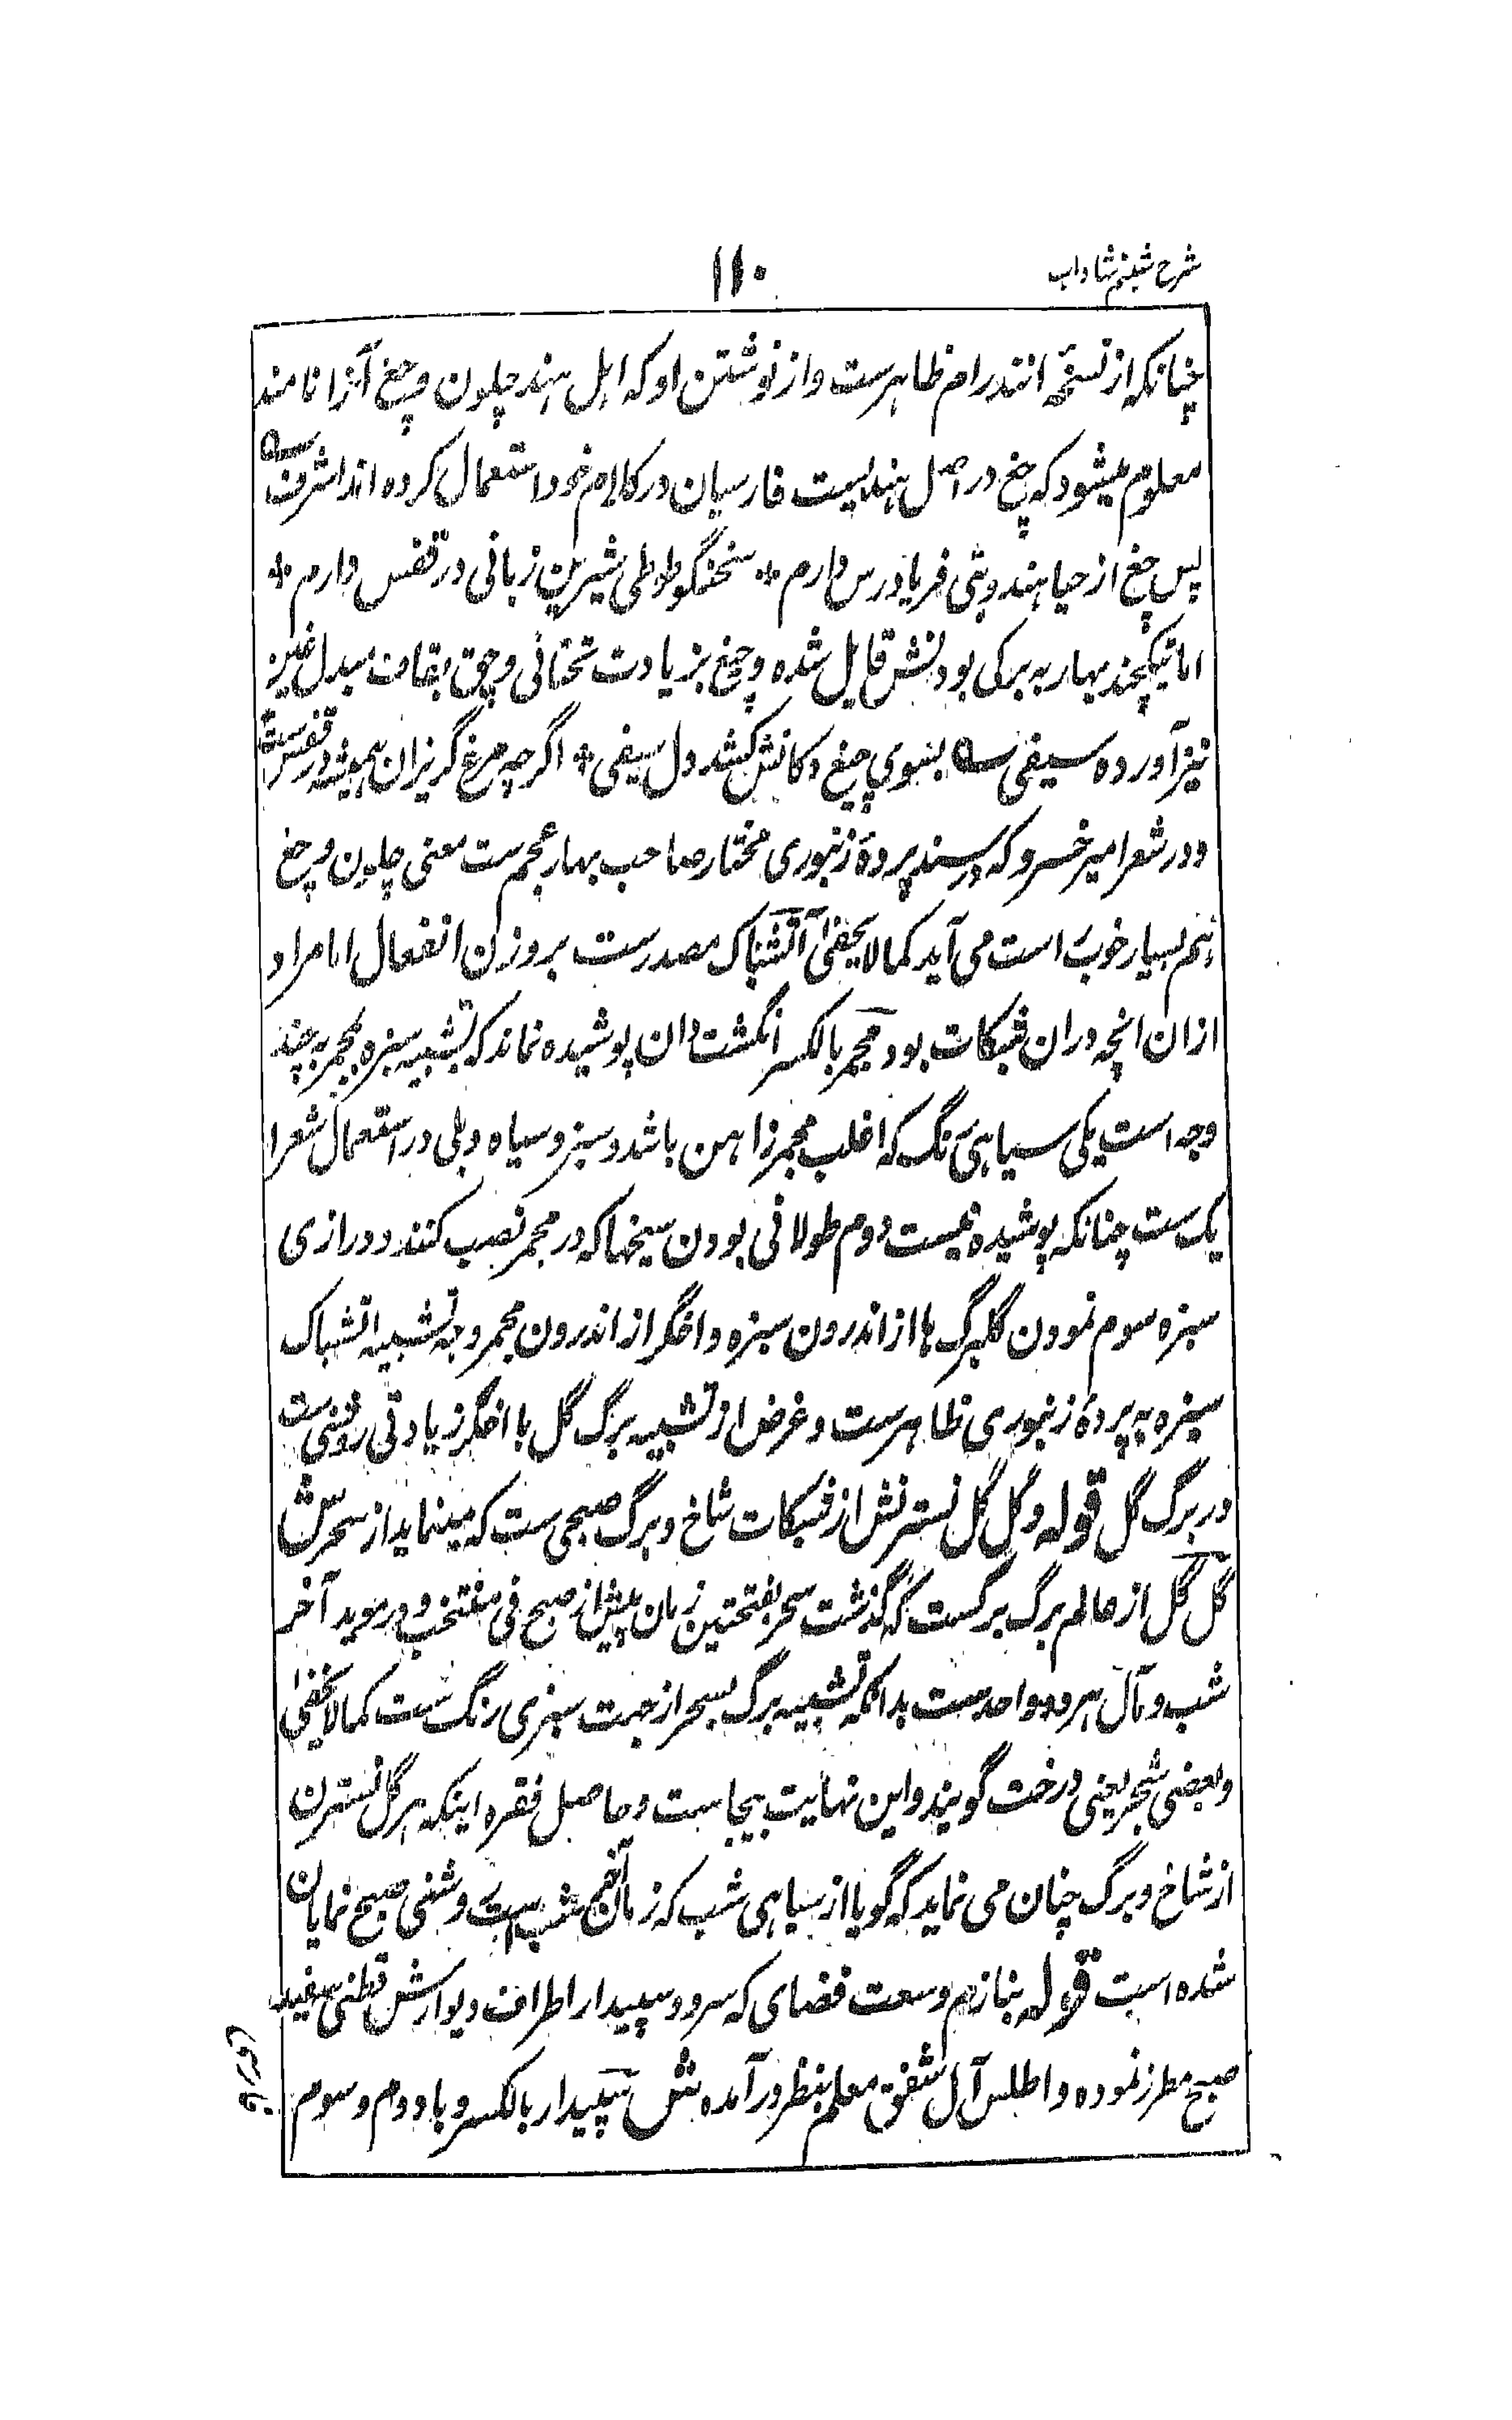 شرح شبنم شاداب
۱۱۰
چنانکه از نسخهٔ انندرام ظاهرست و از نوشتن او که اہل ہند چلون و چغ آنرا نامند
معلوم میشود که چغ در اصل ہندیست فارسیان در کلام خود استعمال کرده اند اشرف ؎
پس چغ از حیا ہندوشی فریادرس دارم * سخنگو طوطی شیرین زبانی در قفس دارم *
اما ٹیکچند بہار به برکی بودنش قایل شده و چیغ بزیادت تحتانی و چق بقاف مبدل غین
نیز آورده سیفی ؎ بسوی چیغ دکانش کشد دل سیفی * اگرچه مرغ گریزان ہمیشه در قفس ست
و در شعر امیر خسرو که در سند پردهٔ زنبوری مختار صاحب بہار عجم ست معنی چلون و چغ
ہم بسیار خوب است می آید کما لا یخفی اشتباک مصدرست بر وزن انفعال اما مراد
ازان انچه دران شبکات بود مجمر بالکسر انگشت دان پوشیده نماند که تشبیه سبزه بمجمر بچند
وجه است یکی سیاہی رنگ که اغلب مجمر ز اہن باشد و سبز و سیاه و بلی در استعمال شعرا
یک ست چنانکه پوشیده نیست دوم طولانی بودن سیخها که در مجمر نصب کنند و درازی
سبزه سوم نمودن گلبرگ ہا از اندرون سبزه و اخگر از اندرون مجمر و جه تشبیه اشتباک
سبزه به پردهٔ زنبوری ظاہرست و غرض از تشبیه برگ گل با اخگر زیادتی روشنی ست
در برگ گل قوله و گل گل نسترنش از شبکات شاخ و برگ صبحی ست که مینماید از سحر ش
گل گل از عالم برگ برگست که گذشت سحر بفتحتین زمان پیش از صبح فی منتخب و در موید آخر
شب و مآل ہر دو واحدست بدانکه تشبیه برگ بسحر از جہت سبزی رنگ ست کما لا یخفی
و بعضی شجر یعنی درخت گویند و این نہایت بیجاست و حاصل فقره اینکه ہر گل نسترن
از شاخ و برگ چنان می نماید که گویا از سیاہی شب که زمان آخر شب ست روشنی صبح نمایان
شده است قوله بنازم وسعت فضای که سرو و سپیدار اطراف دیوارش قطنی سفید
صبح مطرز نموده و اطلس آل شفق معلم بنظر در آمده ش سپیدار بالکسر و با دوم و سوم